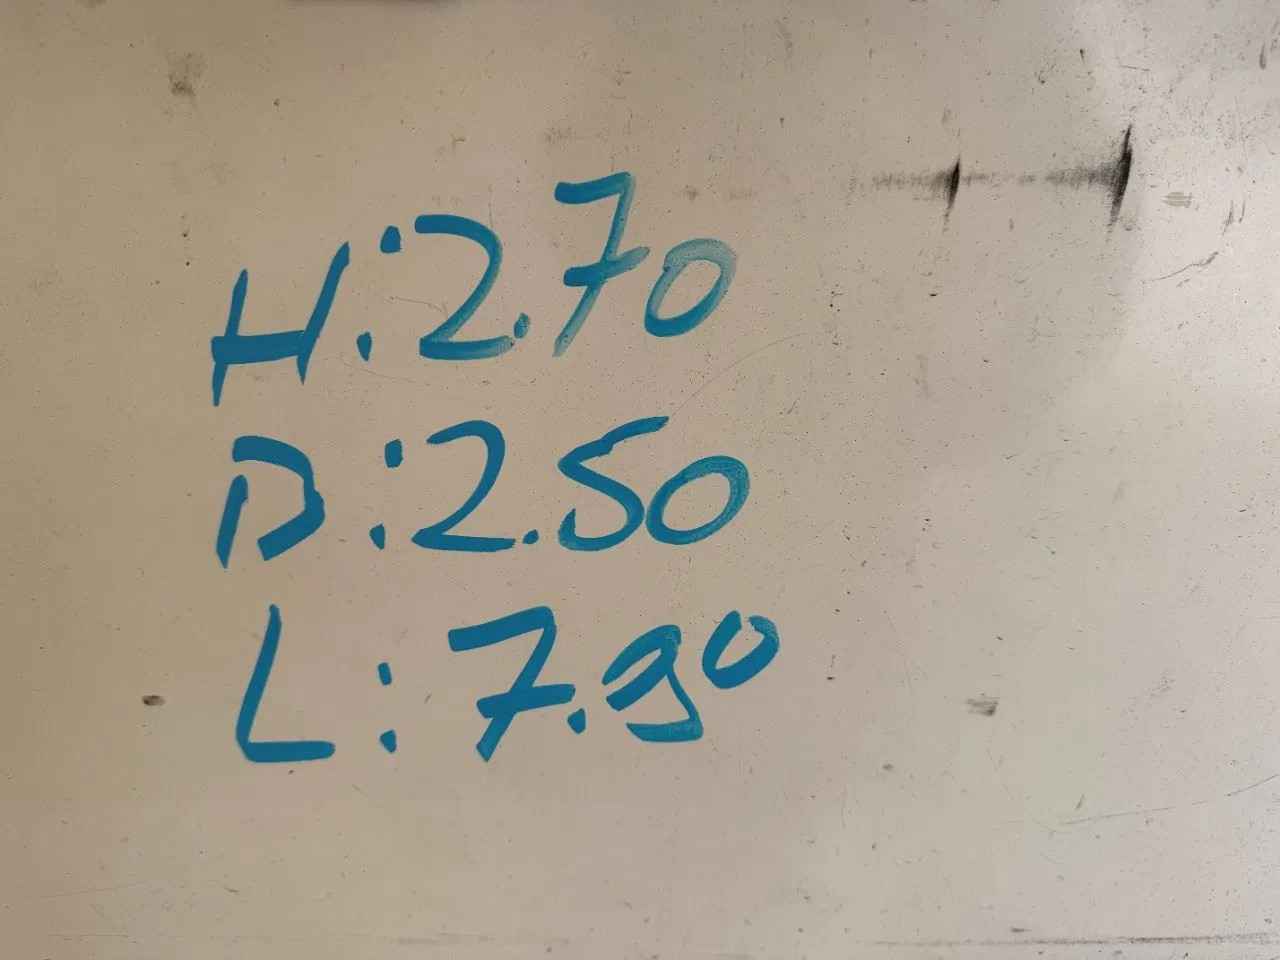 H: 2.70
B: 2.50
L: 7.90